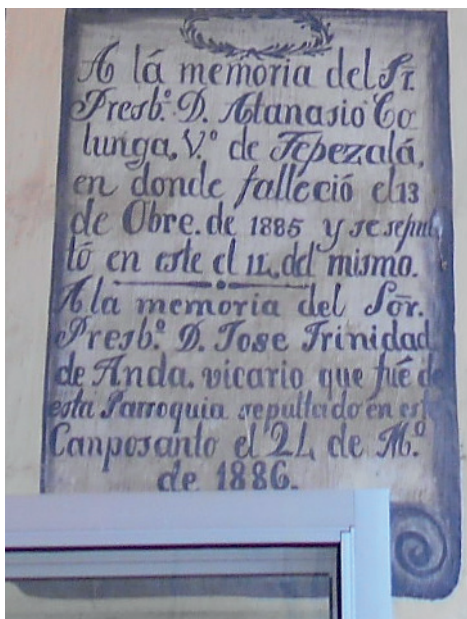 A lá memoria del Sr.
Presb.º D. Atanasio Co
lunga, V.º de Tepezalá,
en donde falleció el 13
de Obre. de 1885 y se sepul
tó en este el 14 del mismo.
A la memoria del Sōr.
Presb.º D. Jose Trinidad
de Anda. vicario que fué de
esta Parroquia sepultado en este
Canposanto el 24 de M.º
de 1886.